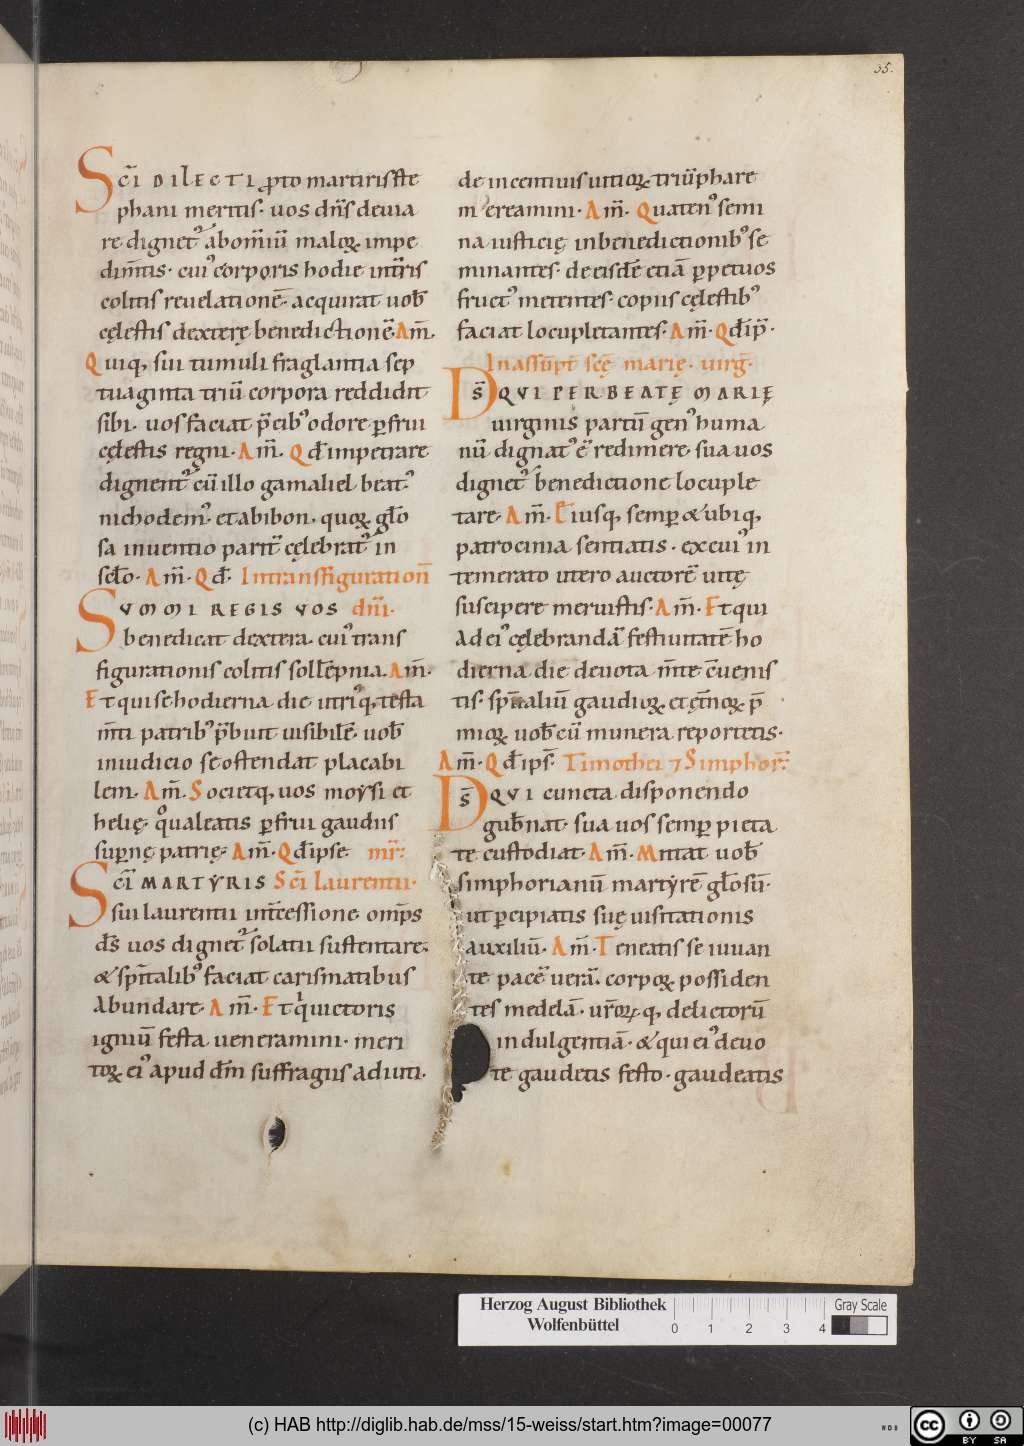 35.
Sc̄i DILECTI ꝓto martiris ste
phani meritis· uos dn̄s deuia
re dignet᷒ abom̄iū maloꝝ impe
dim̄tis· cui᷒ corporis hodie int̄ris
colitis reuelationē· acquirat uob̄
cęlestis dexterę benedictionē Am̄.
Quiq, sui tumuli fraglantia sep
tuaginta triū corpora reddidit
sibi· uos faciat p̄cib᷒ odore ꝑfrui
cęlestis regni· Am̄. Qd̄ impetrare
dignent᷒ cū illo gamaliel beat᷒·
nichodem᷒· et abibon· quoꝝ gl̄o
sa inuentio parit̄ cęlebrat᷒ in
scl̄o· Am̄· Qd̄· In transfiguration̄
SVMMI REGIS VOS dn̄i·
benedicat dextera· cui᷒ trans
figurationis colitis sollēpnia· Am̄·
Et qui se hodierna die utriq, testa
m̄ti patrib᷒ p̄buit uisibilē· uob̄
in iudicio se ostendat placabi
lem· Am̄. Societq, uos moysi et
helię· qͦ ualeatis ꝑfrui gaudiis
suꝑnę patrię· Am̄· Qd̄ ipse mr̄·
Sc̄i MARTYRIS Sc̄i laurentii·
sui laurentii int̄cessione omp̄s
ds̄ uos dignet᷒ solatii sustentare·
& sp̄italib᷒ faciat carismatibus
Abundare· Am̄· Et qͥ uictoris
igniū festa ueneramini· meri
toꝝ ei᷒ apud dm̄ suffragiis adiuti·
de incentiuis uitioꝝ triūphare
mereamini· Am̄· Quaten᷒ semi
na iusticię in benedictionib᷒ se
minantes· de eisdē etiā ꝑpetuos
fruct᷒ metentes· copiis cęlestib᷒
faciat locupletantes· Am̄· Qd̄ ip̄·
In assūpt̄ scę̄ marię· uirḡ·
Ds̄ QVI PER BEATĘ MARIĘ
uirginis partū gen᷒ huma
nū dignat᷒ ē redimere· sua uos
dignet᷒ benedictione locuple
tare· Am̄· Eiusq, semꝑ & ubiq,
patrocinia sentiatis· ex cui᷒ in
temerato utero auctorē uitę
suscipere meruistis· Am̄· Et qui
ad ei᷒ cęlebrandā festiuitatē ho
dierna die deuota m̄te c̄uenis
tis· sp̄italiū gaudioꝝ et ęt̄noꝝ p̄
mioꝝ uob̄ cū munera reportetis·
Am̄· Qd̄ ips̄· Timothei ⁊ Simphor̄·
Ds̄ QVI cuncta disponendo
gub̄nat· sua uos semꝑ pieta
te custodiat· Am̄· Mittat uob̄
simphorianū martyrē gl̄osū·
ut ꝑcipiatis suę uisitationis
auxiliū· Am̄· Teneatis se iuuan
te pacē uerā· corpoꝝ possiden
tes medelā· ur̄oꝝ q, delictorū
indulgentiā· & qui ei᷒ deuo
te gaudetis festo· gaudeatis
Herzog August Bibliothek
Wolfenbüttel
0 1 2 3 4
Gray Scale
(c) HAB http://diglib.hab.de/mss/15-weiss/start.htm?image=00077
cc BY SA